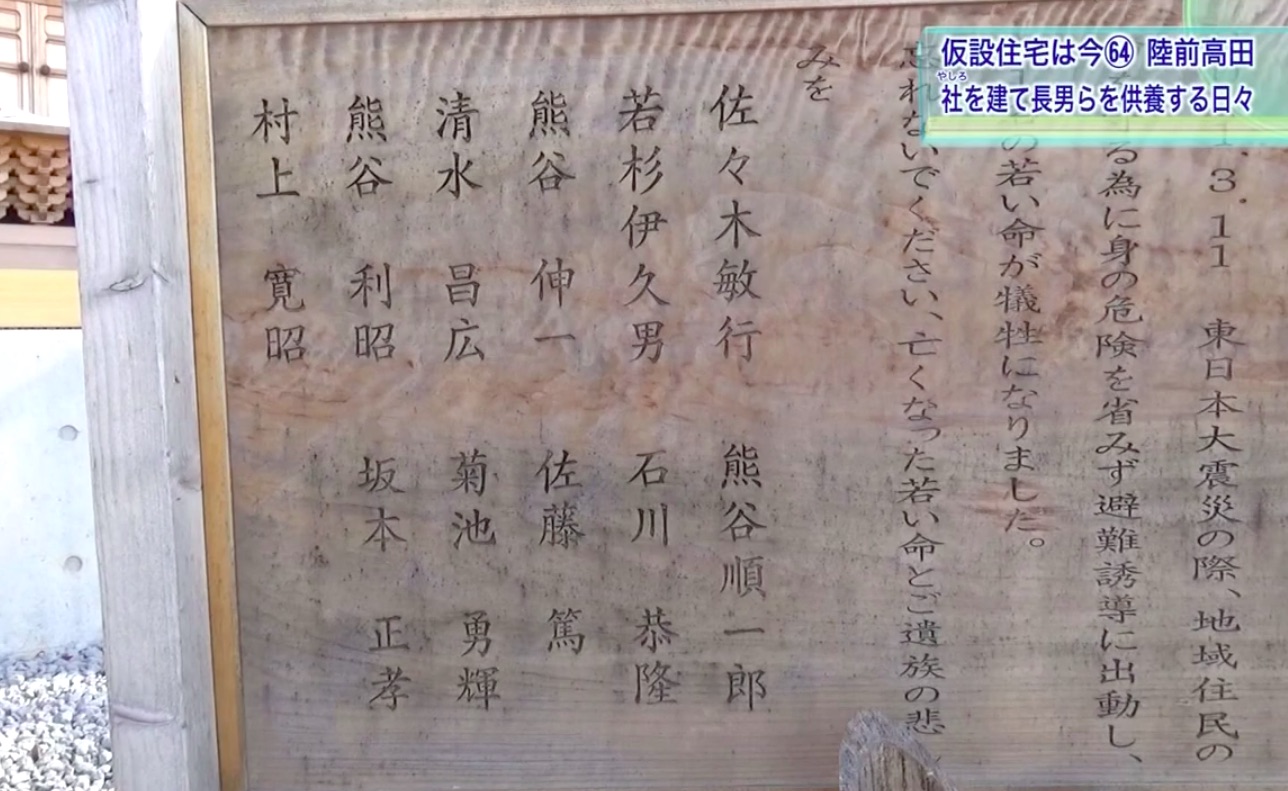 仮設住宅は今㉔ 陸前高田
やしろ
社を建て長男らを供養する日々
1.3.11 東日本大震災の際、地域住民の
る為に身の危険を省みず避難誘導に出動し、
の若い命が犠牲になりました。
忘れないでください、亡くなった若い命とご遺族の悲し
みを
佐々木敏行 熊谷順一郎
若杉伊久男 石川恭隆
熊谷伸一 佐藤篤
清水昌広 菊池勇輝
熊谷利昭 坂本正孝
村上寛昭